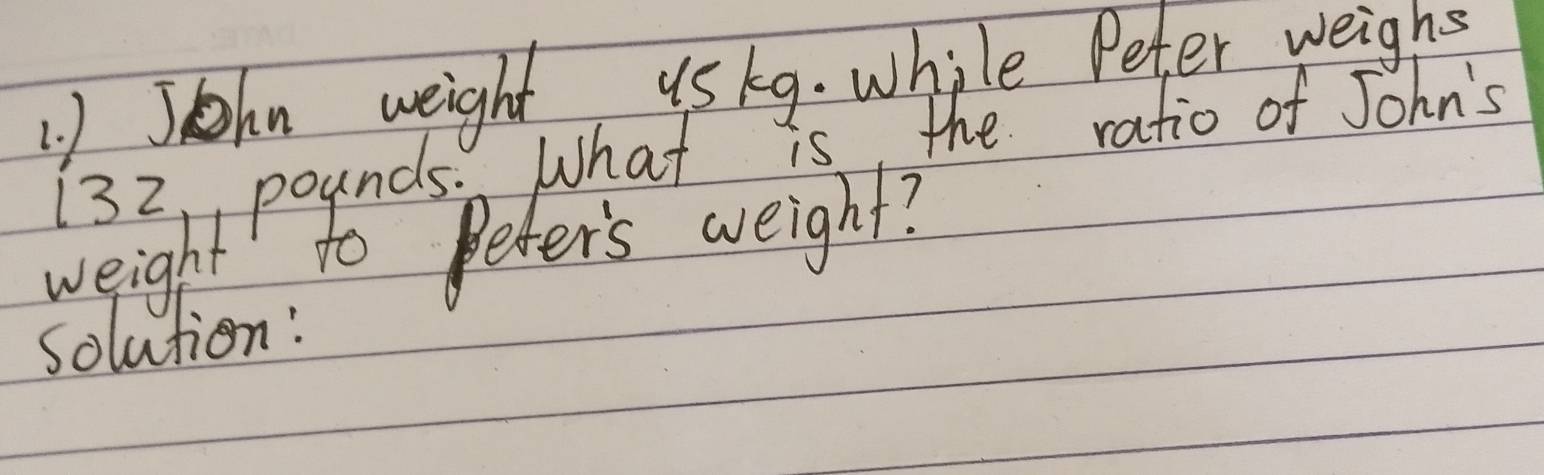 1.) John weight 45 kg. while Peter weighs
132 pounds. What is the ratio of John's
weight to Peter's weight?
solution: